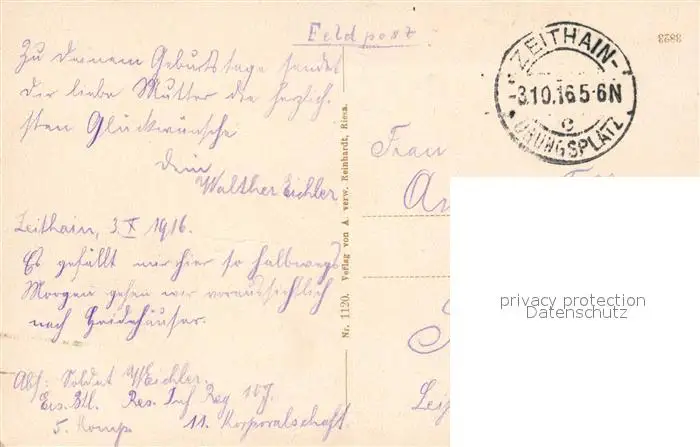 Feldpost
3823
ZEITHAIN-
-3.10.16 5-6N
c
ÜBUNGSPLATZ
Zu Deinem Geburtstage sendet
Dir liebe Mutter die herzlich-
sten Glückwünsche
Dein
Walther Eichler
Zeithain, 3.X 1916.
Es gefällt mir hier so halbwegs
Morgen gehen wir voraussichtlich
nach Heidehäuser.
Abs: Soldat W Eichler.
Ers. Btl. Res. Inf Reg 107.
5. Komp 11. Korporalschaft.
Nr. 1120. Verlag von A. verw. Reinhardt, Riesa.
Frau
privacy protection
Datenschutz